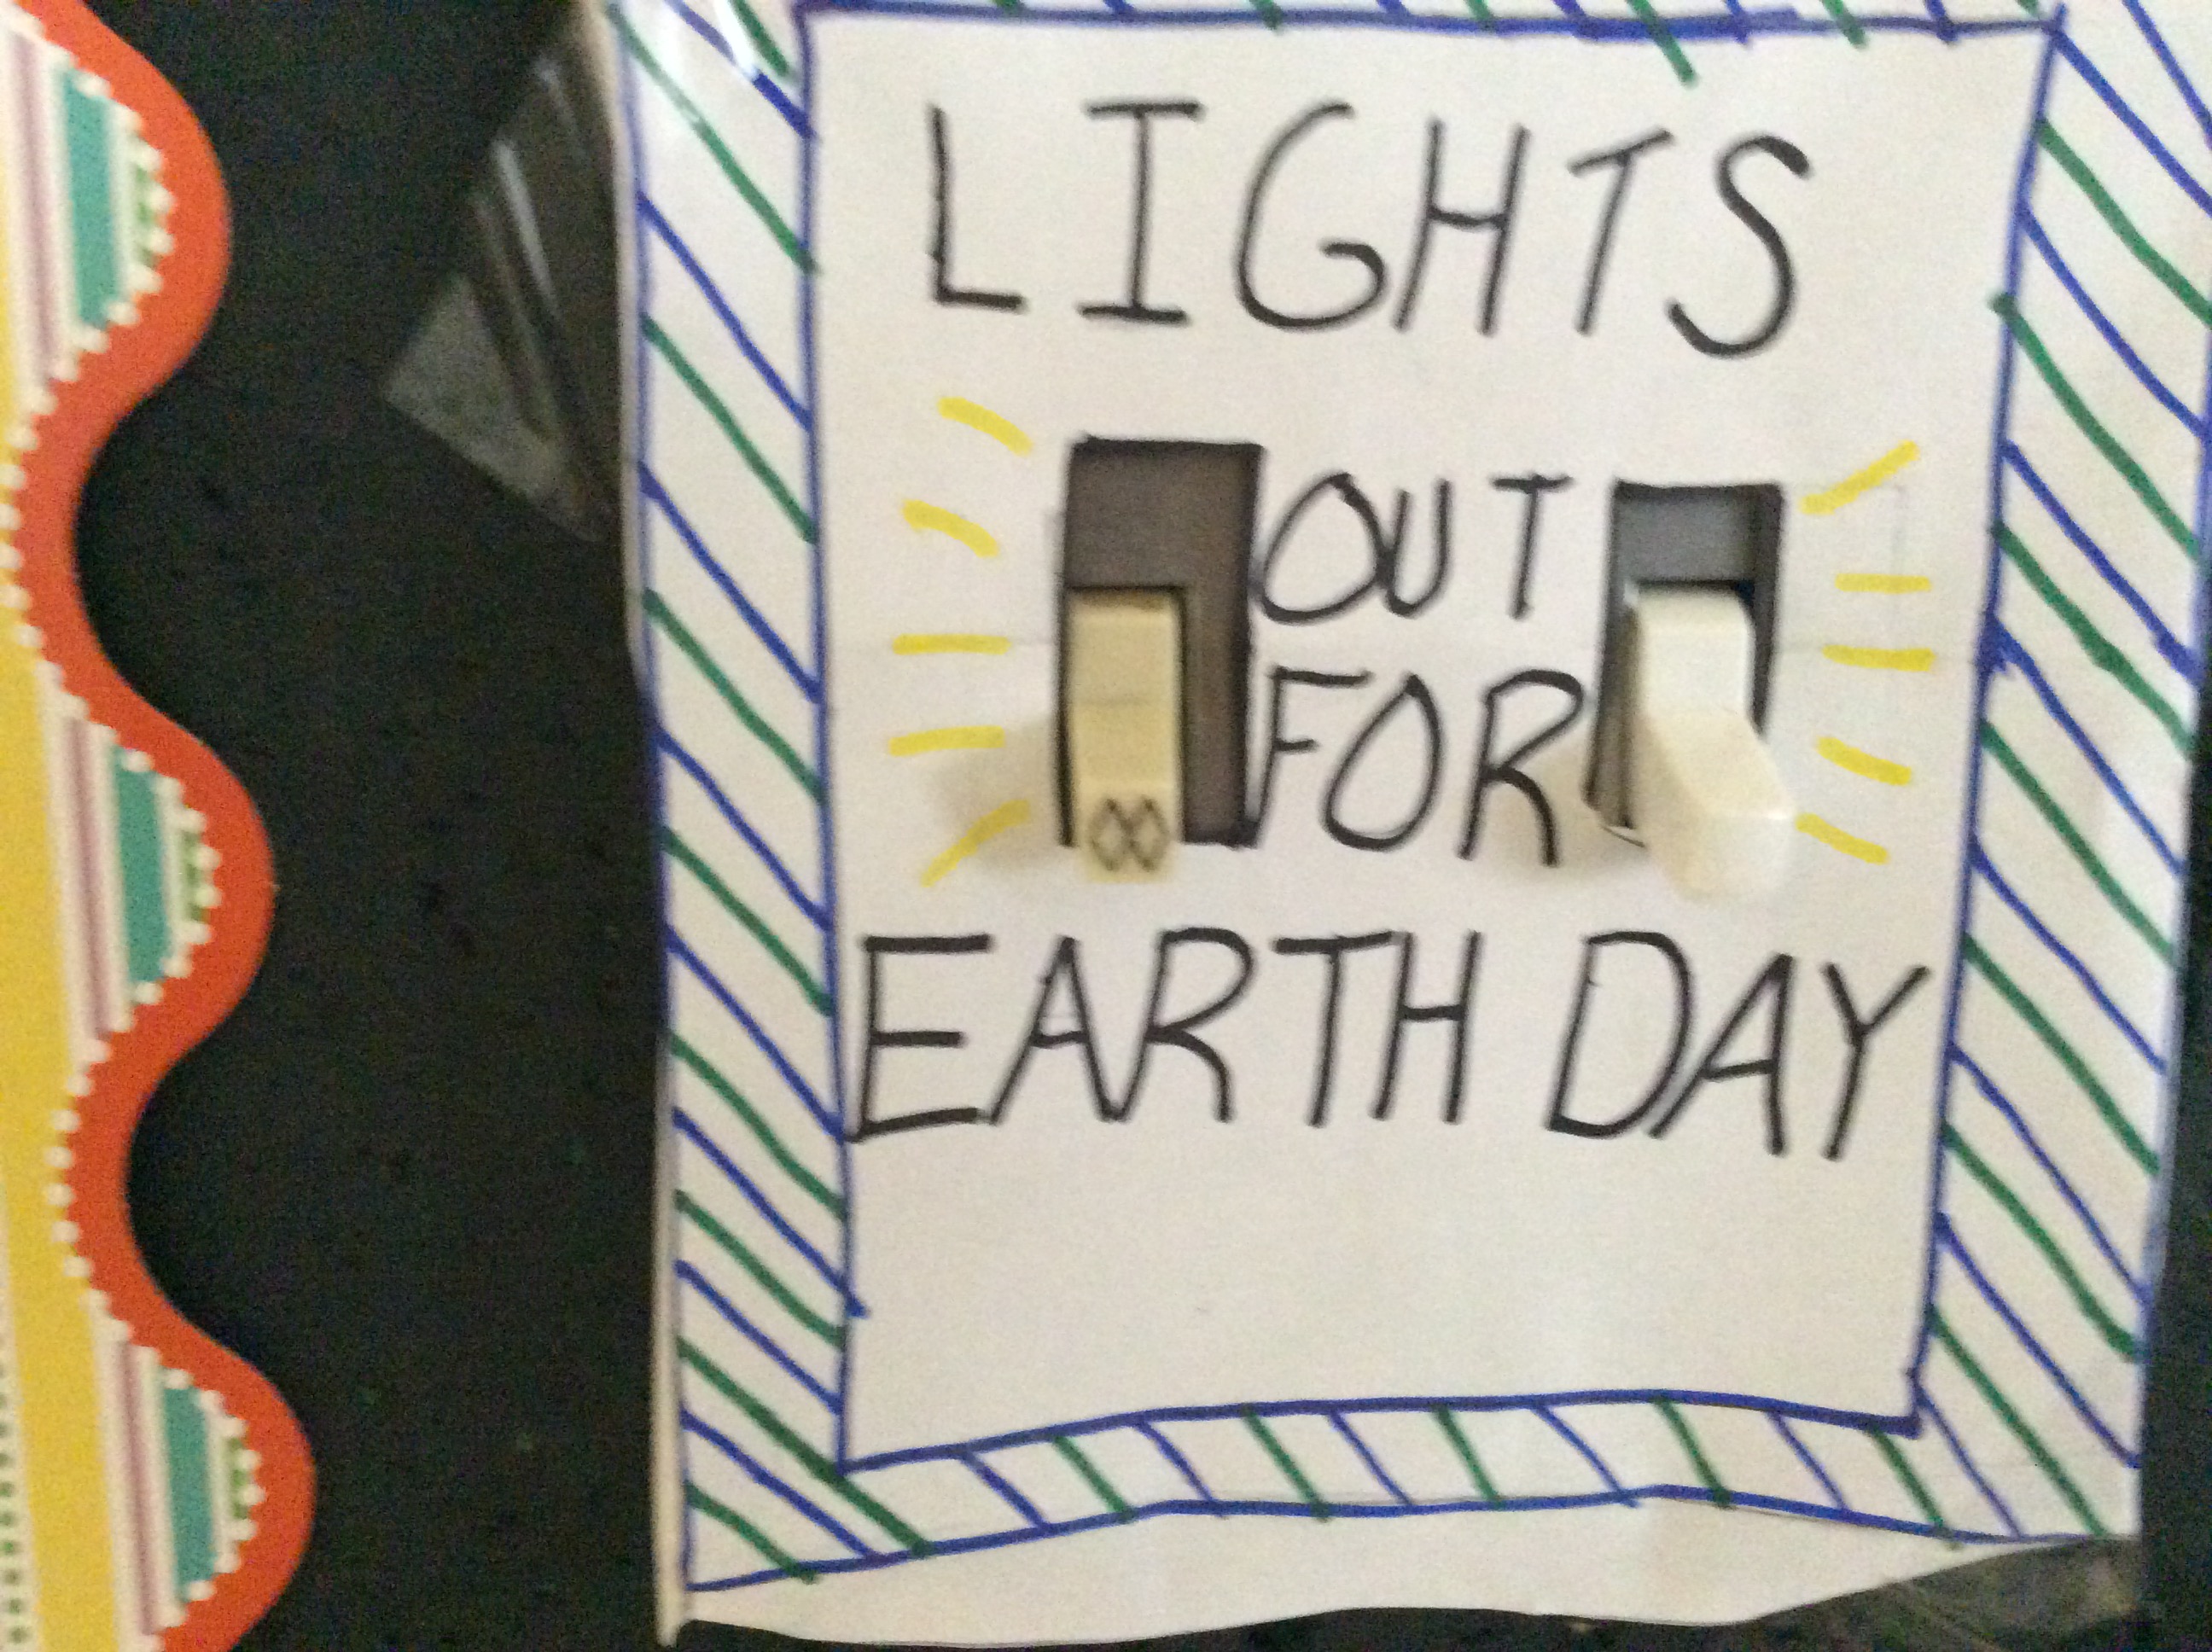 LIGHTS
OUT
FOR
EARTH DAY